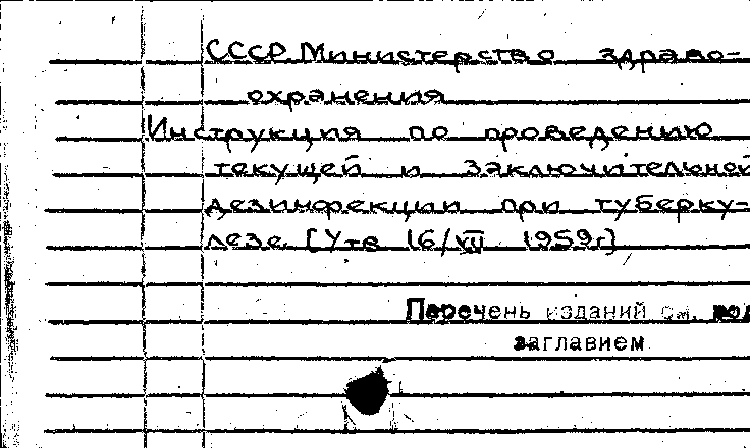 СССР. Министерство здраво-
охранения
Инструкция по проведению
текущей и заключительной
дезинфекции при туберку-
лезе. [Утв 16/VII 1959г]
Перечень изданий см. под
заглавием